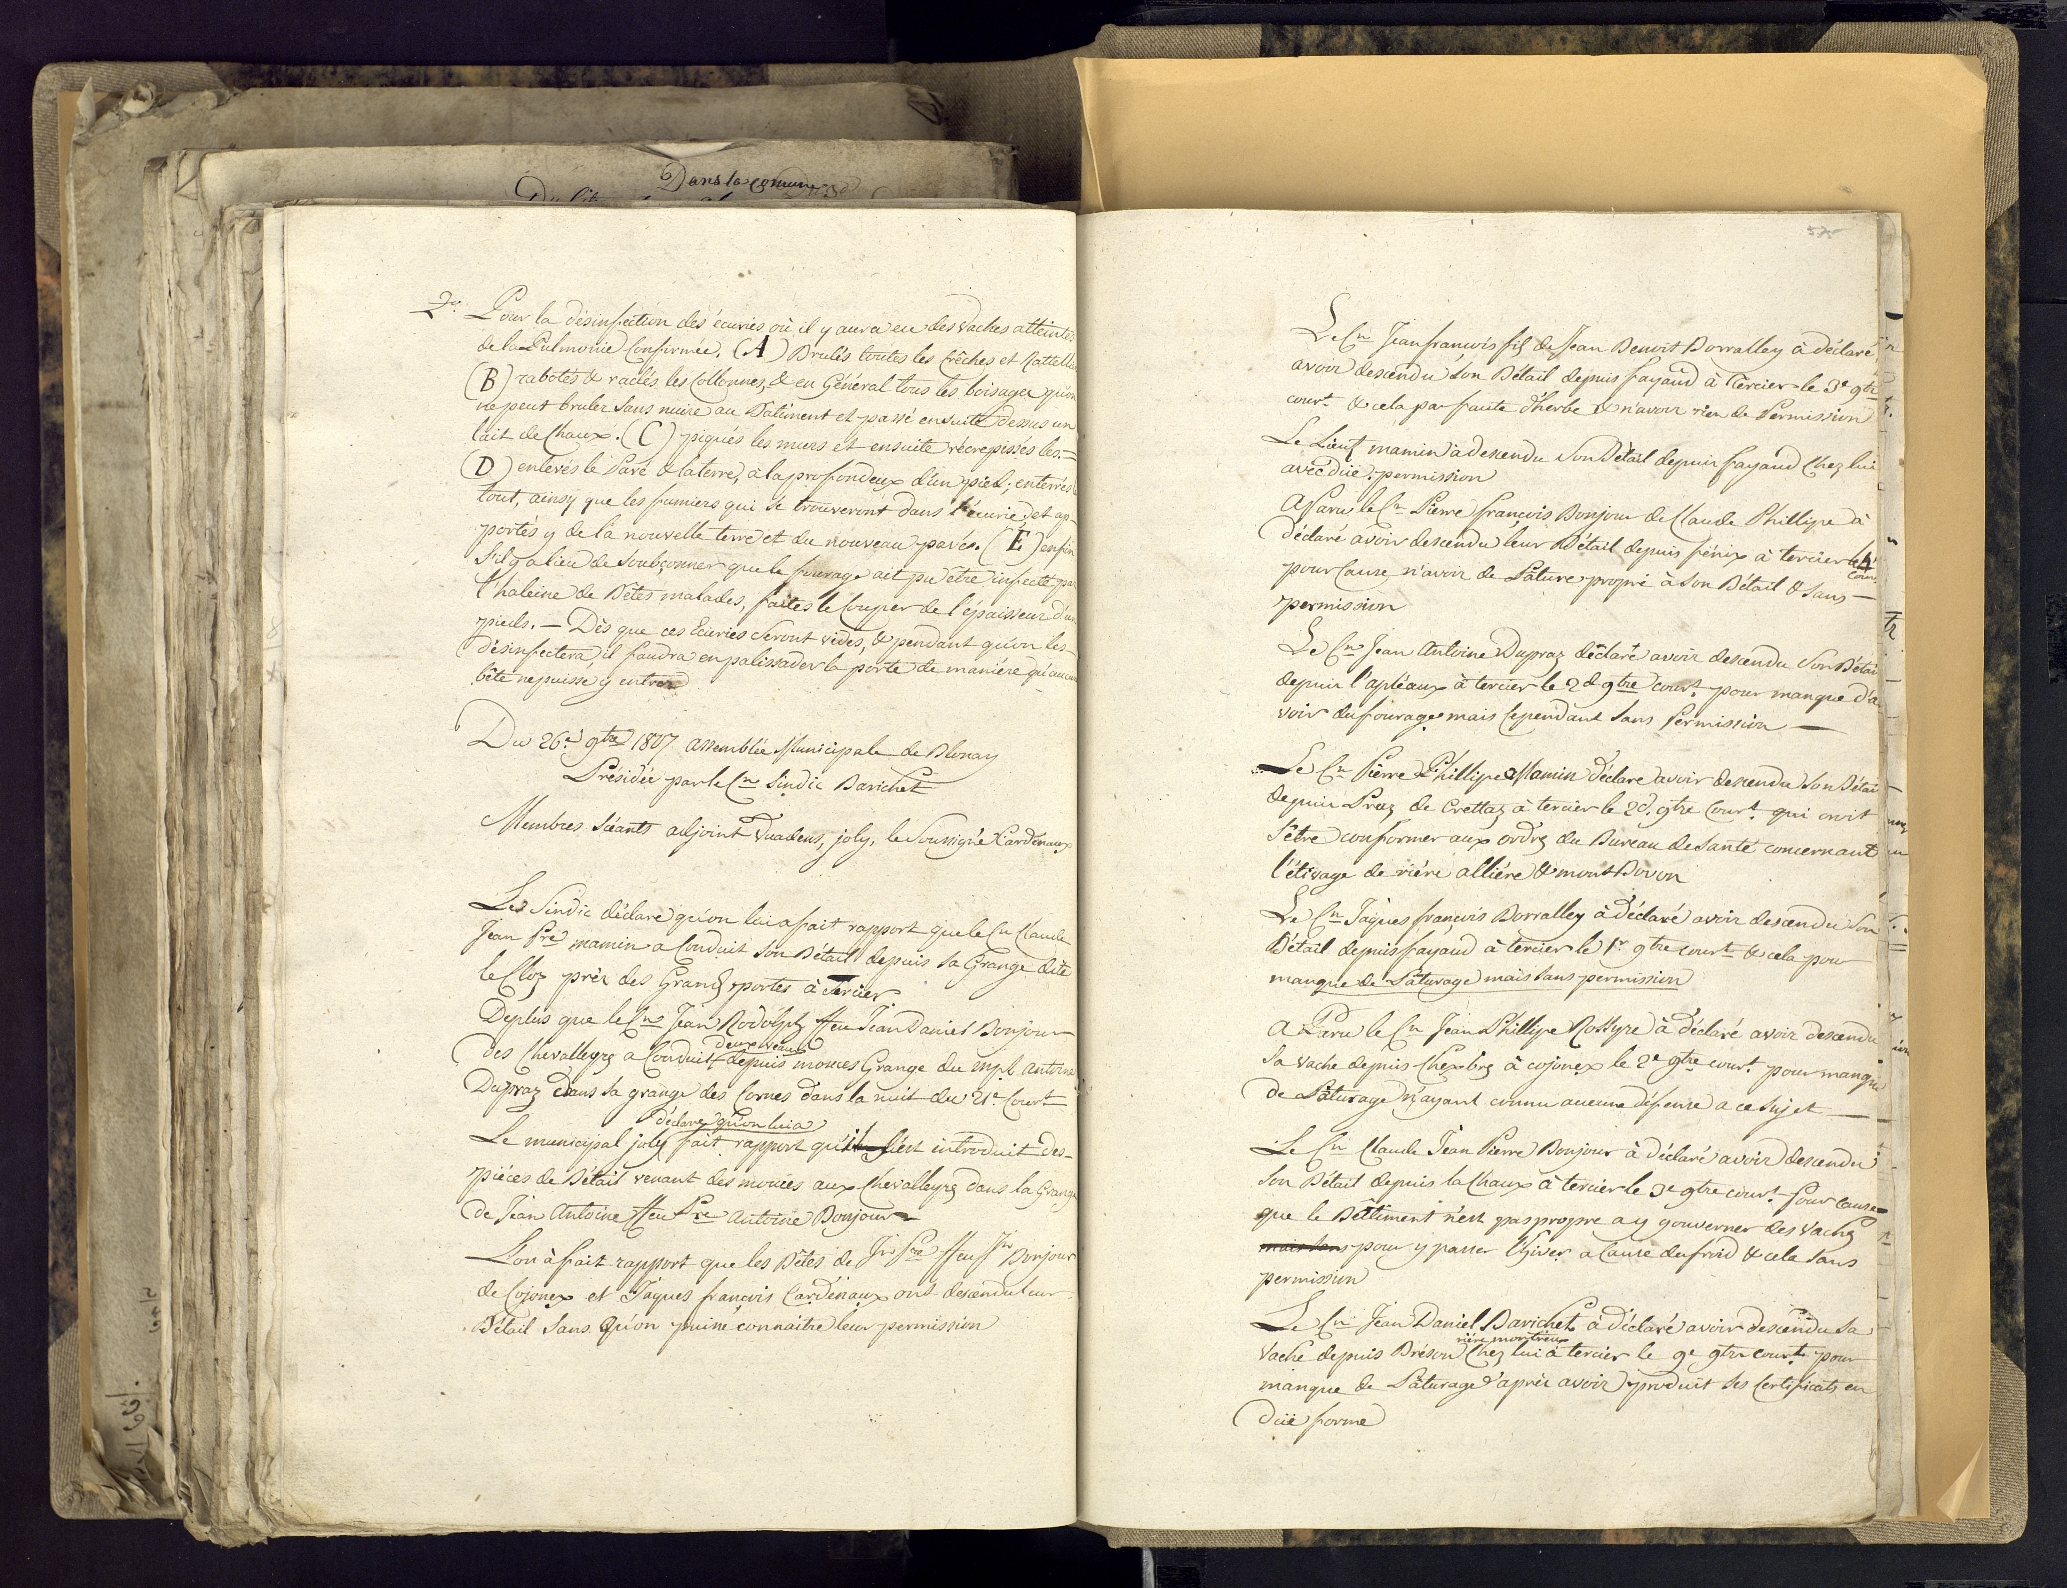 Dans la comune
2º. Pour la désinfection des écuries où il y aura eu des vaches atteintes
de la Pulmonie Confirmée, (A) Brulés toutes les Crêches et Rattelliers
(B) rabotés & raclés les Collonnes, & en Général tous les boisages qu'on
ne peut bruler sans nuire au Batiment et passé ensuite dessus un
lait de Chaux. (C) piqués les murs et ensuite récrepissés les. =
(D) enlevés le Pavé & la terre, à la profondeux d'un pied; enterrés
tout, ainsy que les fumiers qui se trouveront dans l'écurie, et ap-
portés y de la nouvelle terre et du nouveau pavés. (E) enfin
s'il y a lieu de Soubçonner que le fourage ait pu être infecté par
l'haleine de Bêtes malades, faites le Couper de l'épaisseur d'un
pieds. — Dès que ces Ecuries seront vides, & pendant qu'on les
désinfectera, il faudra enpalissader la porte de maniére qu'aucune
bête ne puisse y entrer
Du 26e. 9bre 1807 assemblée Municipale de Blonay
Présidée par le Cn Sindic Barichet
Membres Séants adjoint Duadens, joly, le Soussigné Cardinaux
Le Sindic déclare qu'on lui a fait rapport que le Cn Claude
Jean Fre mamin a Conduit son Bétail depuis sa Grange dite
le Cloz près des Grands portes à Tercier
Deplus que le Cns Jean Rodolph ffeu Jean Daniel Bonjour
deux veaux
des Chevalleyre a Conduit depuis mouces Grange du mpl Antoine
Dupraz dans sa grange des Cornes dans la nuit du 21e Court
déclare qu'on lui a
Le municipal joly fait rapport qu'il s'est introduit des-
piéces de Bétail venant des mouces aux Chévalleyre dans la Grange
de Jean Antoine ffeu Pre Antoine Bonjour
L'on à fait rapport que les Bêtes de Jn Fre ffeu Jn Bonjour
de Cojonex et Jaques françois Cardinaux ont descendu leur
Bétail Sans Qu'on puine connaitre leur permission
Le Cn Jeanfrancois fils de Jean Benoit Borralley à déclaré
avoir descendu son Bétail depuis fayaud à Tercier le 3e 9bre
court & cela par faute d'herbe & n'avoir rien de Permission
Le Lieut mamin à descendu Son Bétail depuis fayaud Chez lui
avec düe permission
A Paru le Cn Pierre françois Bonjour de Claude Phillipe à
déclaré avoir descendu leur Bétail depuis fénix à tercier le 4
Court
pour Cause n'avoir de Pâture propre à son Bétail & sans —
permission
Le Cn Jean Antoine Dupraz déclare avoir descendu Son Bétail
depuis l'apléaux à tercier le 2d 9bre court. pour manque d'a-
voir du fourage mais Cependant sans Permission —
Le Cn Pierre Phillipe Mamin déclare avoir descendu Son Bétail
depuis Praz de Crettaz à tercier le 2d. 9bre Court. qui croit
s'être conformer aux ordre du Bureau de Santé concernant
l'étivage de riére alliére & mont Bovon
Le Cn Jaques françois Borralley à déclaré avoir descendu Son
Bétail depuis fayaud à tercier le 1r 9bre court & cela pour
manque de Pâturage mais sans permission
A Paru le Cn Jean Phillipe Rossyre à déclaré avoir descendu
sa vache depuis Chexbre à cojonex le 2e 9bre court. pour manque
de Pâturage n'ayant connu aucune défense a ce Sujet —
Le Cn Claude Jean Pierre Bonjour à déclaré avoir descendu
son Bétail depuis la Chaux à tercier le 3e 9bre court. Pour cause
que le Bâtiment n'est pas propre a y gouverner des vache
mais sans pour y passer l'hiver a Cause du froid & cela sans
permission
Le Cn Jean Daniel Barichet à déclaré avoir descendu sa
riére montreux
vache depuis Bréson Chez lui à tercier le 9e 9bre court. pour
manque de Pâturage d'après avoir produit ses Certificats en
düe forme